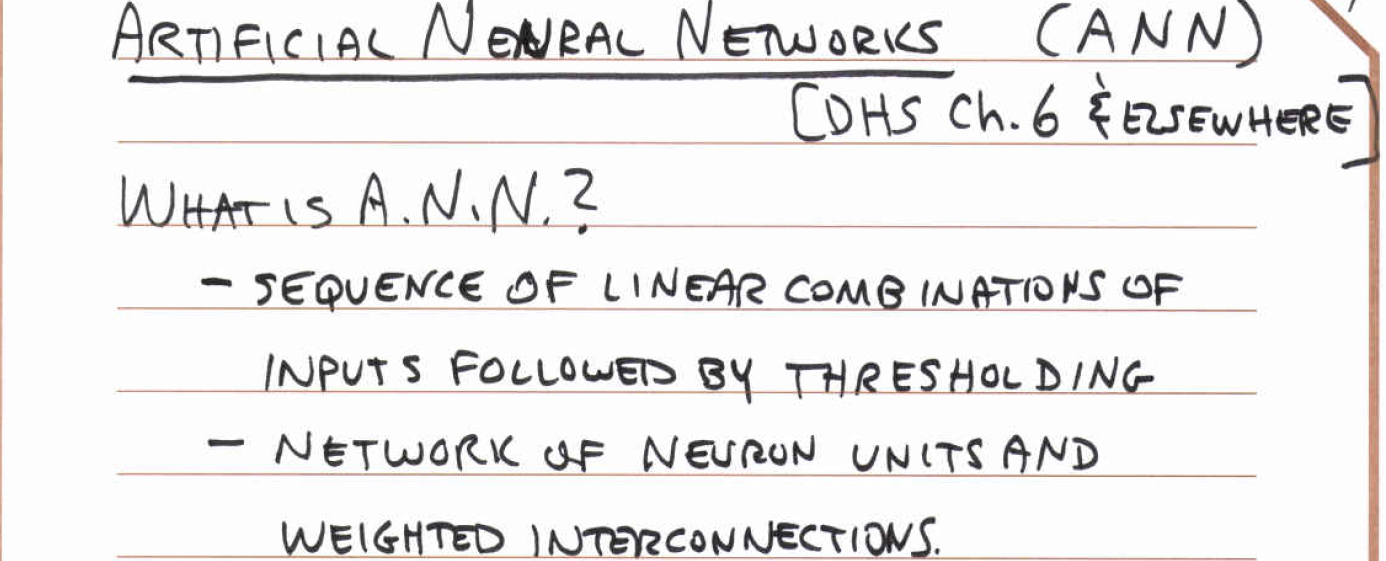 ARTIFICIAL NEURAL NETWORKS (ANN)
[DHS Ch. 6 & ELSEWHERE]
WHAT IS A.N.N.?
- SEQUENCE OF LINEAR COMBINATIONS OF
INPUTS FOLLOWED BY THRESHOLDING
- NETWORK OF NEURON UNITS AND
WEIGHTED INTERCONNECTIONS.